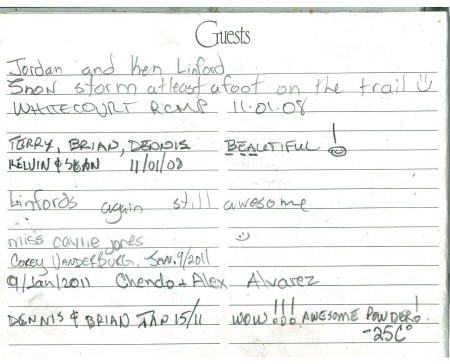 Guests
Jordan and Ken Linford
Snow storm atleast a foot on the trail
WHITECOURT RCMP 11.01.08
TERRY, BRIAN, DENNIS BEAUTIFUL!
KELVIN & SEAN 11/01/08
Linfords again still awesome
miss caylie jones
COREY VANDERBURG. Jan. 9/2011
9/Jan/2011 Chendo + Alex Alvarez
DENNIS & BRIAN JAN 15/11 WOW!!! AWESOME POWDER!
-25C°